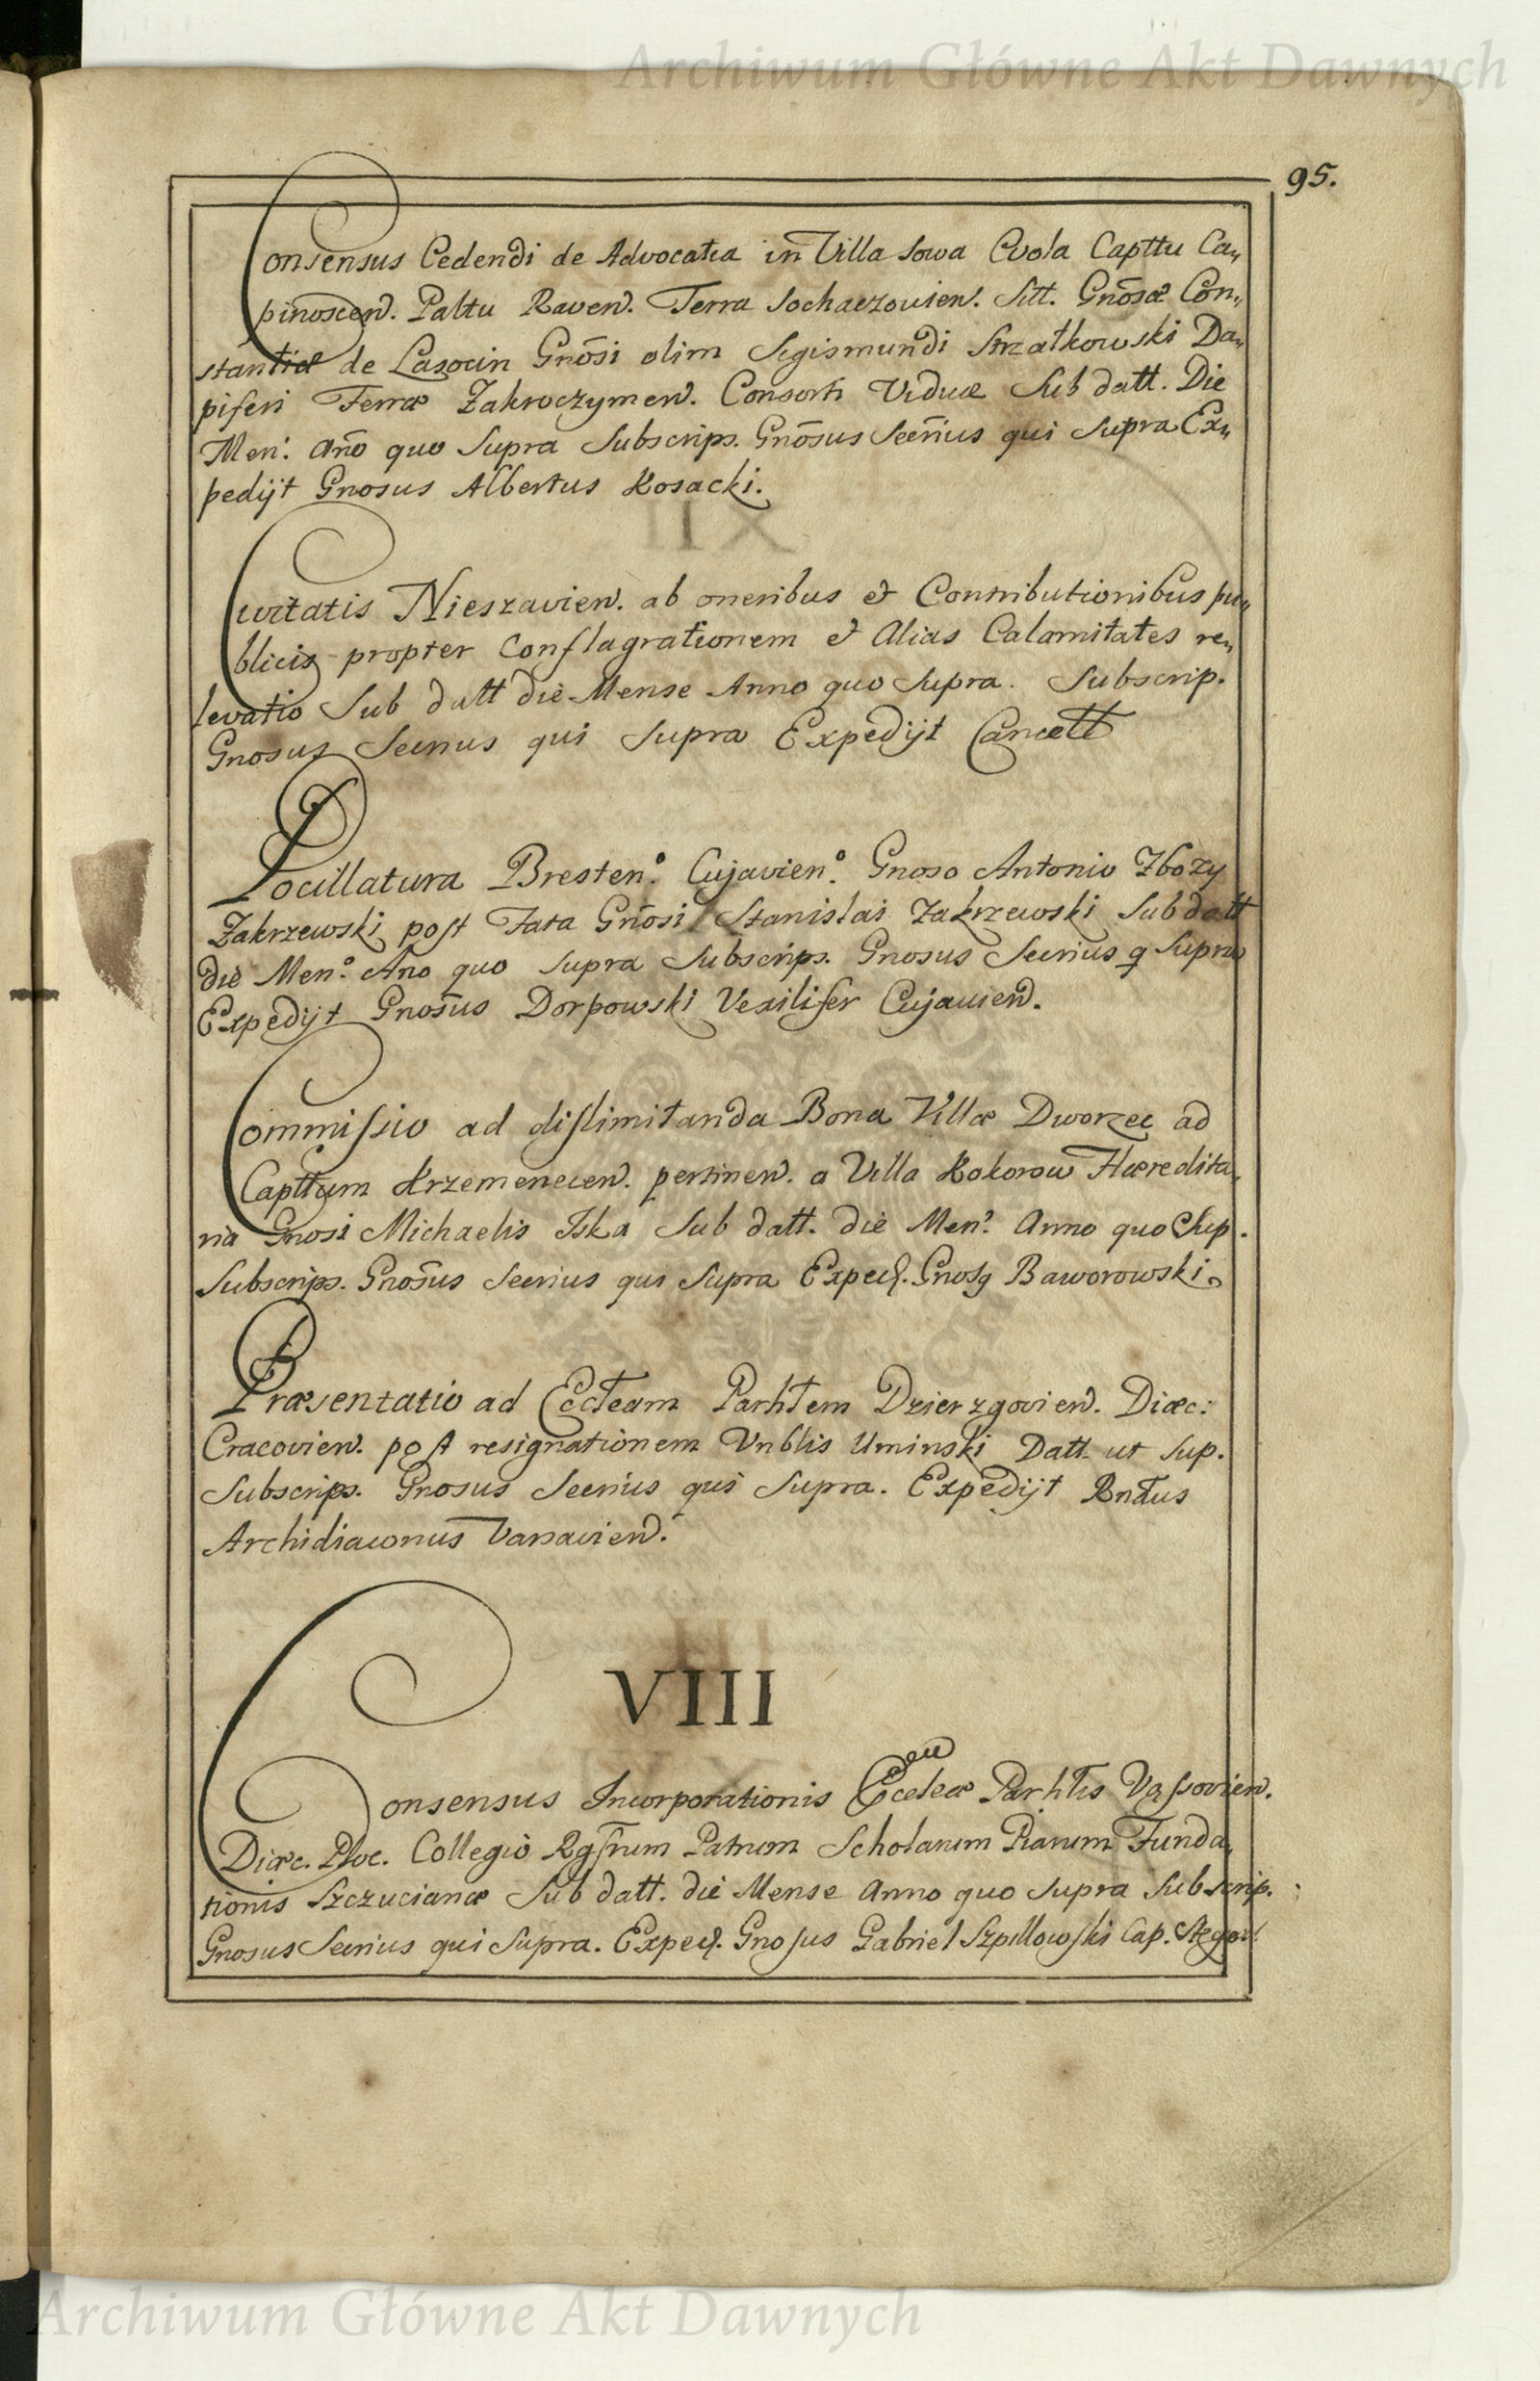 Archiwum Główne Akt Dawnych
95.
Consensus Cedendi de Advocatia in Villa Sowa Wola Capttu Ca„
pinoscen. Paltu Raven. Terra Sochaczovien. Sitt. Gnosæ Con„
stantiæ de Lasocin Gnosi olim Sigismundi Strzałkowski Da„
piferi Terræ Zakroczymen. Consorti Viduæ Sub datt. Die
Men: Ano quo Supra Subscrips. Gnosus Secrius qui Supra Ex„
pedijt Gnosus Albertus Kosacki.
Civitatis Nieszavien. ab oneribus et Contributionibus pu„
blicis propter Conflagrationem et Alias Calamitates re„
levatio Sub datt die Mense Anno quo Supra. Subscrip.
Gnosus Secrius qui Supra Expedijt Cancell
Pocillatura Bresten. Cujavien. Gnoso Antonio Zbozy
Zakrzewski post Fata Gnosi Stanislai Zakrzewski Sub datt
die Men. Ano quo Supra Subscrips. Gnosus Secrius q Supra
Expedijt Gnosus Dorpowski Vexilifer Cujavien.
Commissio ad dislimitanda Bona Villæ Dworzec ad
Capttum Krzemenecen. pertinen. a Villa Kokorow Hæredita„
ria Gnosi Michaelis Iska Sub datt. die Men. Anno quo Sup.
Subscrips. Gnosus Secrius qui Supra Exped. Gnosq Baworowski.
Præsentatio ad Eccleam Parhlem Dzierzgovien. Diæc:
Cracovien. post resignationem Vnblis Uminski Datt ut Sup.
Subscrips. Gnosus Secrius qui Supra. Expedijt Rndus
Archidiaconus Varsavien.
VIII
Consensus Incorporationis Eccleæ Parhlis Vassovien.
Diæc. Ploc. Collegio Rgsrum Patrum Scholarum Piarum Funda„
tionis Szczucianæ Sub datt. die Mense Anno quo Supra Subscrip.
Gnosus Secrius qui Supra. Exped. Gnosus Gabriel Szpillowski Cap.
Archiwum Główne Akt Dawnych